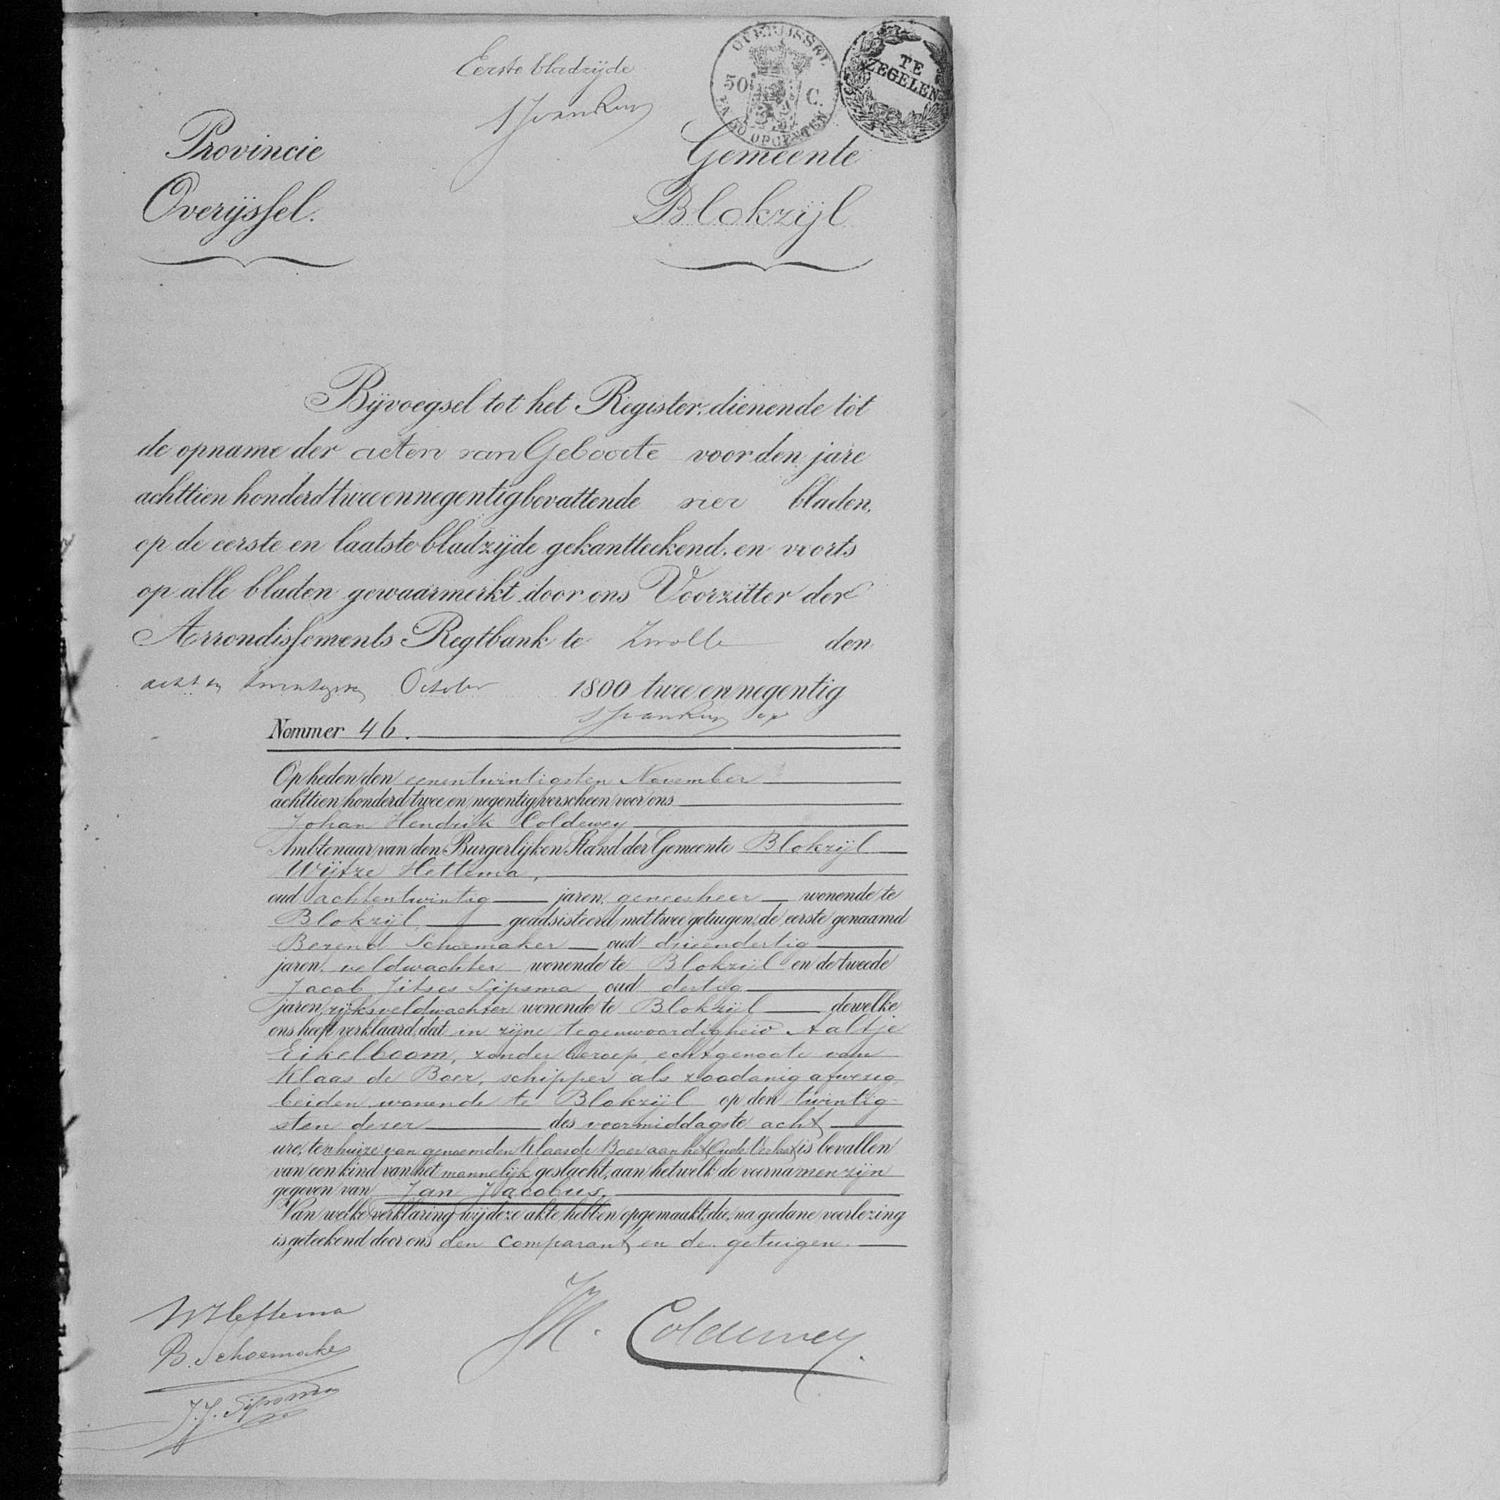 Eerste bladzijde
OVERIJSSEL
50 C.
OPCENTEN
TE
ZEGELEN
Provincie
Overijssel.
Gemeente
Blokzijl
Bijvoegsel tot het Register, dienende tot
de opname der acten van Geboorte voor den jare
achttien honderd twee en negentig bevattende vier bladen,
op de eerste en laatste bladzijde gekantteekend, en voorts
op alle bladen gewaarmerkt door ons Voorzitter der
Arrondissements Regtbank te Zwolle den
acht en twintigsten October 1800 twee en negentig
Nommer 46.
Op heden den eenentwintigsten November
achttien honderd twee en negentig verscheen voor ons
Johan Hendrik Coldewey
Ambtenaar van den Burgerlijken Stand der Gemeente Blokzijl
Wijtze Hettema,
oud achtentwintig jaren, geneesheer wonende te
Blokzijl, geadsisteerd met twee getuigen, de eerste genaamd
Berend Schoemaker oud drieendertig
jaren, veldwachter wonende te Blokzijl en de tweede
Jacob Jitses Sipsma oud dertig
jaren, rijksveldwachter wonende te Blokzijl dewelke
ons heeft verklaard, dat in zijne tegenwoordigheid Aaltje
Eikelboom, zonder beroep, echtgenoote van
Klaas de Boer, schipper als zoodanig afwezig,
beiden wonende te Blokzijl op den twintig-
sten dezer des voormiddags te acht
ure, ten huize van genoemden Klaas de Boer aan het Oude is bevallen
van een kind van het mannelijk geslacht, aan hetwelk de voornamen zijn
gegeven van Jan Jacobus.
Van welke verklaring wij deze akte hebben opgemaakt, die, na gedane voorlezing
is geteekend door ons den comparant en de getuigen.
WHettema
B. Schoemaker
J.J. Sipsma
JH. Coldewey.